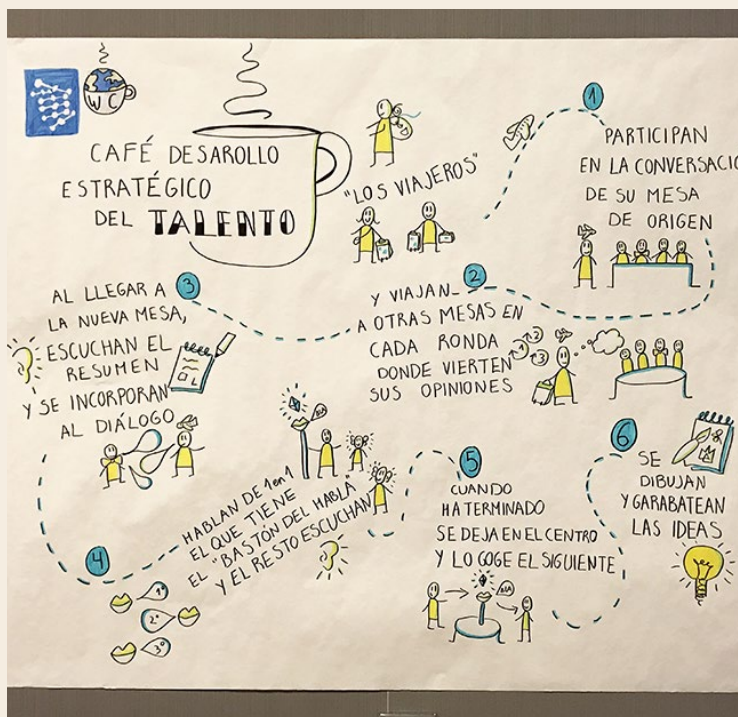 WC
CAFÉ DESAROLLO
ESTRATÉGICO
DEL TALENTO
"LOS VIAJEROS"
1
PARTICIPAN
EN LA CONVERSACIO
DE SU MESA
DE ORIGEN
2
Y VIAJAN
A OTRAS MESAS EN
CADA RONDA
DONDE VIERTEN
SUS OPINIONES
1
2
3
3
AL LLEGAR A
LA NUEVA MESA,
ESCUCHAN EL
RESUMEN
Y SE INCORPORAN
AL DIÁLOGO
4
HABLAN DE 1 en 1
EL QUE TIENE
EL "BASTÓN DEL HABLA"
Y EL RESTO ESCUCHAN
1º
2º
3º
5
CUANDO
HA TERMINADO
SE DEJA EN EL CENTRO
Y LO COGE EL SIGUIENTE
6
SE
DIBUJAN
Y GARABATEAN
LAS IDEAS